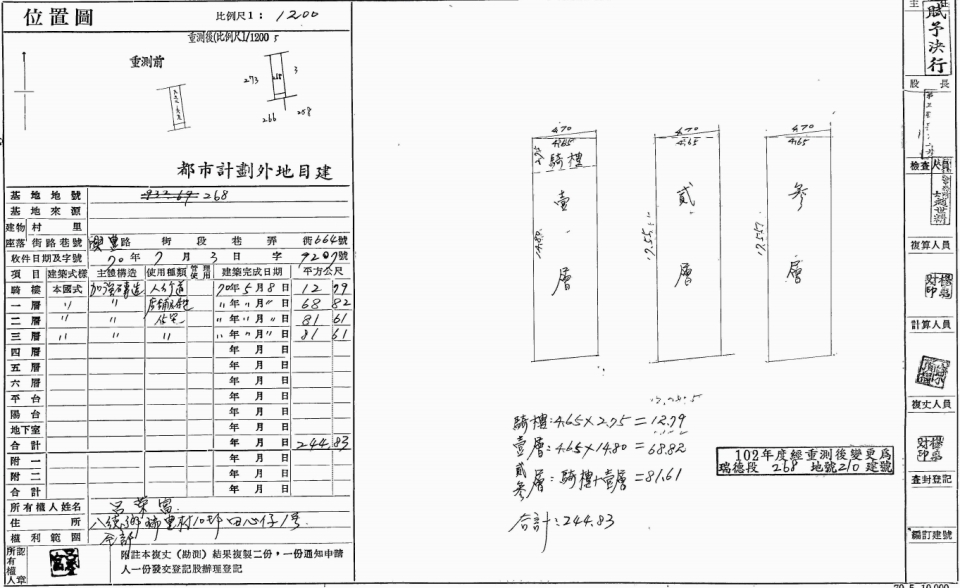 位置圖
比例尺1：1200
重測後(比例尺1/1200 5
重測前
273
268
3
266
258
都市計劃外地目建
基地地號 932-67 268
基地來源
建物 村里
座落 街路巷號 路 街 段 巷 弄 街664號
收件日期及字號 70年7月3日 字 9207號
項目 建築式樣 主體構造 使用種類 管理使用 建築完成日期 平方公尺
騎樓 本國式 加強磚造 人行道 70年5月8日 12 79
一層 〃 〃 店舖住宅 〃年〃月〃日 68 82
二層 〃 〃 住宅 〃年〃月〃日 81 61
三層 〃 〃 〃 〃年〃月〃日 81 61
四層 年 月 日
五層 年 月 日
六層 年 月 日
平台 年 月 日
陽台 年 月 日
地下室 年 月 日
合計 年 月 日 244.83
附一 年 月 日
附二 年 月 日
合計 年 月 日
所有權人姓名
住所 1號
權利範圍
所有權人認章
附註本複丈（勘測）結果複製二份，一份通知申請
人一份發交登記股辦理登記
4.70
4.65
2.75
騎樓
壹層
14.80
4.70
4.65
貳層
17.55
4.70
4.65
參層
17.55
騎樓：4.65×2.75＝12.79
壹層：4.65×14.80＝68.82
貳參層：騎樓+壹層＝81.61
合計：244.83
102年度經重測後變更為
瑞德段 268 地號210 建號
主任
賦予決行
股長
檢查人員
複算人員
計算人員
複丈人員
查封登記
編訂建號
70.5.10,000